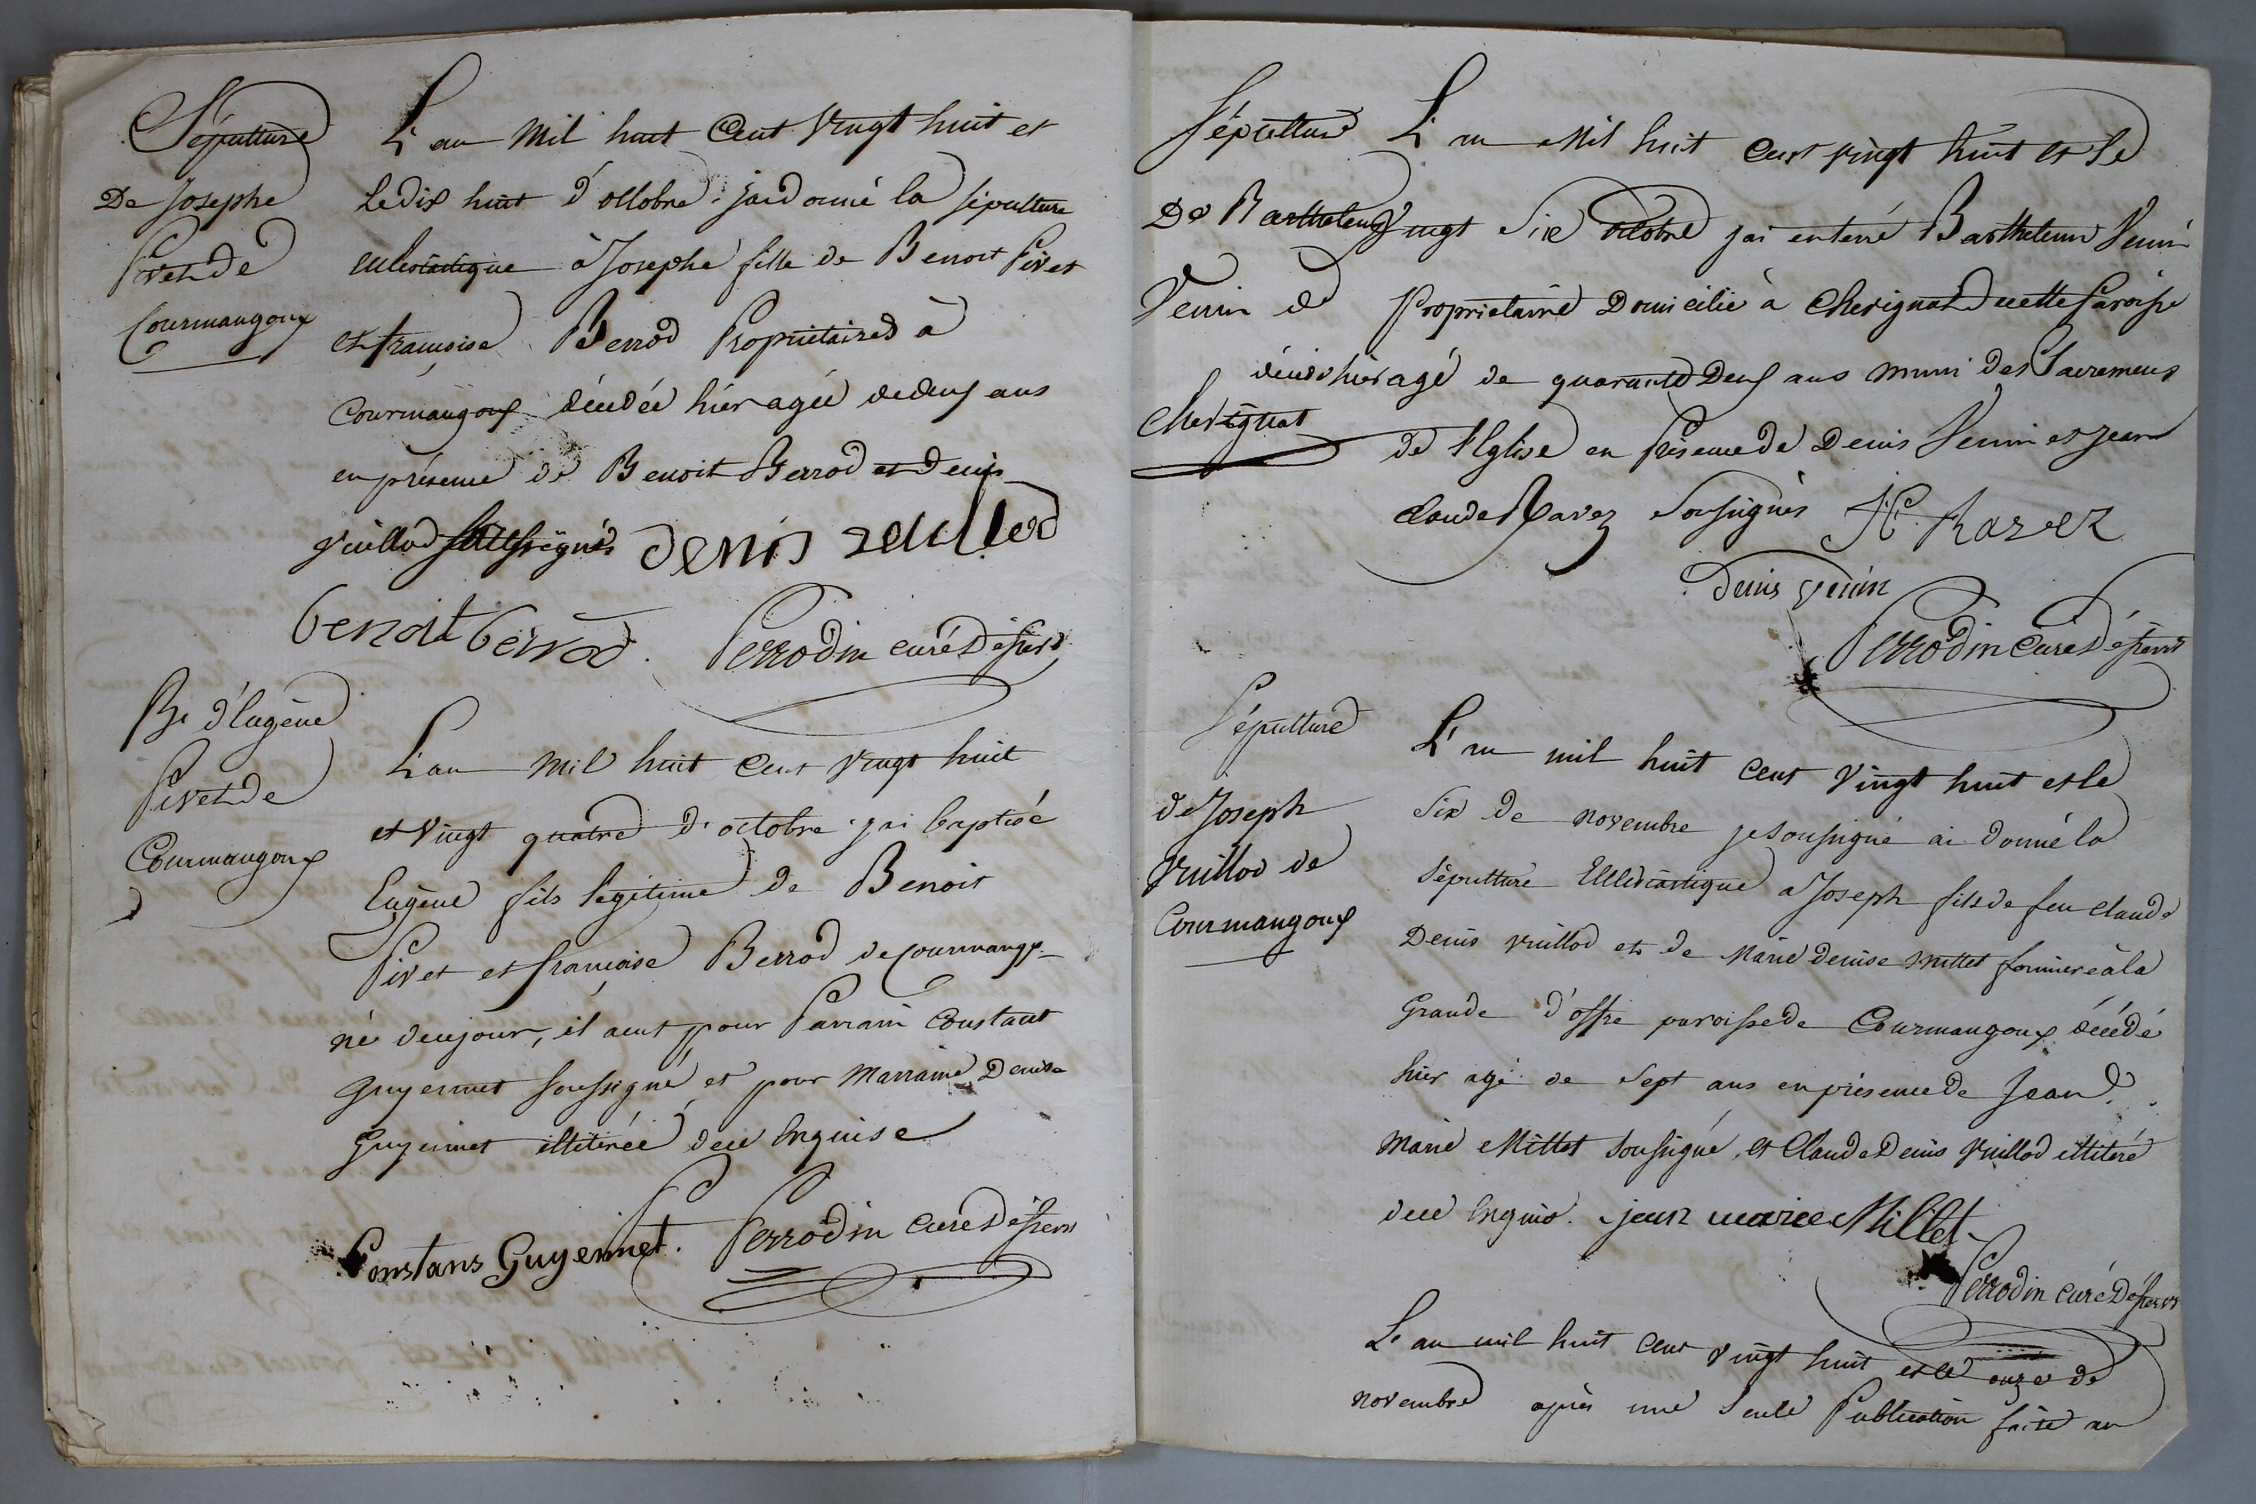 Sépulture
De Josephe
Pivet de
Courmangoux
L'an Mil huit Cent Vingt huit et
Le dix huit d'octobre j'ai donné la sépulture
eclesiastique à Josephe fille de Benoit Pivet
et françoise Berrod Propriétaires à
Courmangoux décédée hier agée de deux ans
en présence de Benoit Berrod et denis
Vuillod soussignés denis vuilled
benoit berrod. Perrodin curé
Be d'Eugène
Pivet de
Courmangoux
L'an Mil huit Cent Vingt huit
et Vingt quatre d'octobre j'ai baptisé
Eugène fils légitime de Benoit
Pivet et françoise Berrod de Courmangx
né dece jour, il a eut pour Parrain Constant
Guyennet soussigné et pour Marraine Denise
Guyennet illitérée dece Enquise
Constans Guyennet. Perrodin Curé
Sépulture
De Barthelemy
Venin de
Chevignat
L'an Mil huit Cent Vingt huit et le
Vingt Six octobre j'ai enterré Barthelemi Venin
Propriétaire Domicilié à Chevignat de cette Paroisse
décédé hier agé de quarante Deux ans muni des Sacremens
de l'Eglise en Présence de Denis Venin et Jean
Claude Ravez Soussignés JC Ravez
Denis Venin
Perrodin Curé
Sépulture
de Joseph
Vuillod de
Courmangoux
L'an mil huit Cent Vingt huit et le
Six de novembre je soussigné ai donné la
Sépulture Ecclesiastique a Joseph fils de feu Claude
Denis Vuillod et de Marie denise Millet fermière à la
Grande d'offre paroisse de Courmangoux décédé
hier agé de Sept ans en présence de Jean
Marie Millet Soussigné, et Claude Denis Vuillod illitéré
dece Enquis. jean marie Millet
Perrodin Curé
L'an mil huit Cent Vingt huit et le onze de
novembre après une Seule Publication faite au